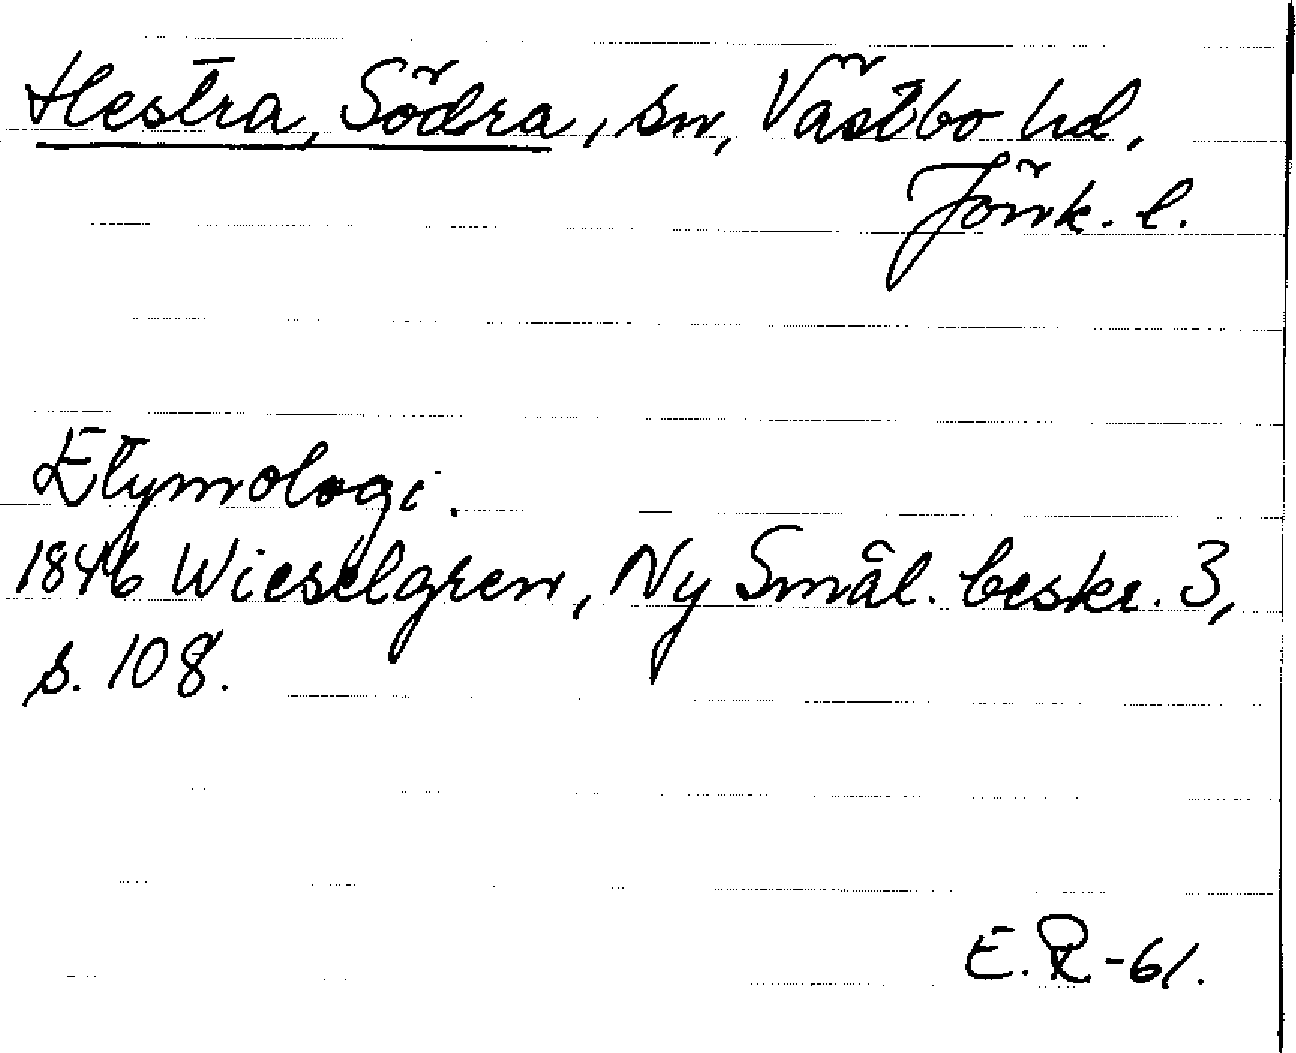 Hestra, Södra, sn, Västbo hd,
Jönk. l.
Etymologi.
1846 Wieselgren, Ny Smål. beskr. 3,
s. 108.
E.R-61.